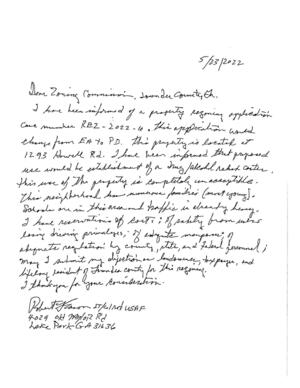 5/23/2022
Dear Zoning Commission, Lowndes County, Ga.
I have been informed of a property rezoning application
Case number REZ-2022-4. this application would
change from EA to P.D. this property is located at
1293 Howell Rd. I have been informed that proposed
use would be establishment of a drug/alcohol rehab center.
This use of the property is completely unacceptable.
This neighborhood has numerous families (most young).
Schools are in this area and traffic is already heavy.
I have reservations of cost; of safety from
losing driving privileges, of
adequate regulation by county, state, and Federal personnel;
may I submit my objection as landowner, taxpayer, and
lifelong resident of Lowndes county for this rezoning.
I thank you for your consideration.
Robert USAF
4029 Old Rd
Lake Park GA 31636